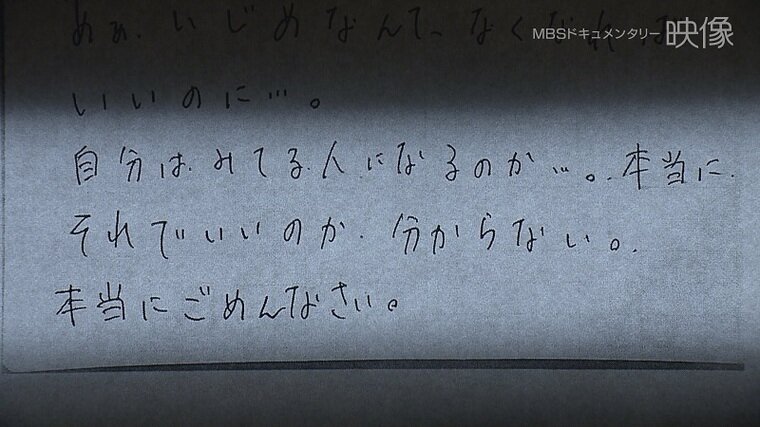 MBSドキュメンタリー 映像
あぁ、いじめなんて、なくなれば
いいのに…。
自分は、みてる、人、になるのか…。本当に、
それでいいのか、分からない。
本当にごめんなさい。